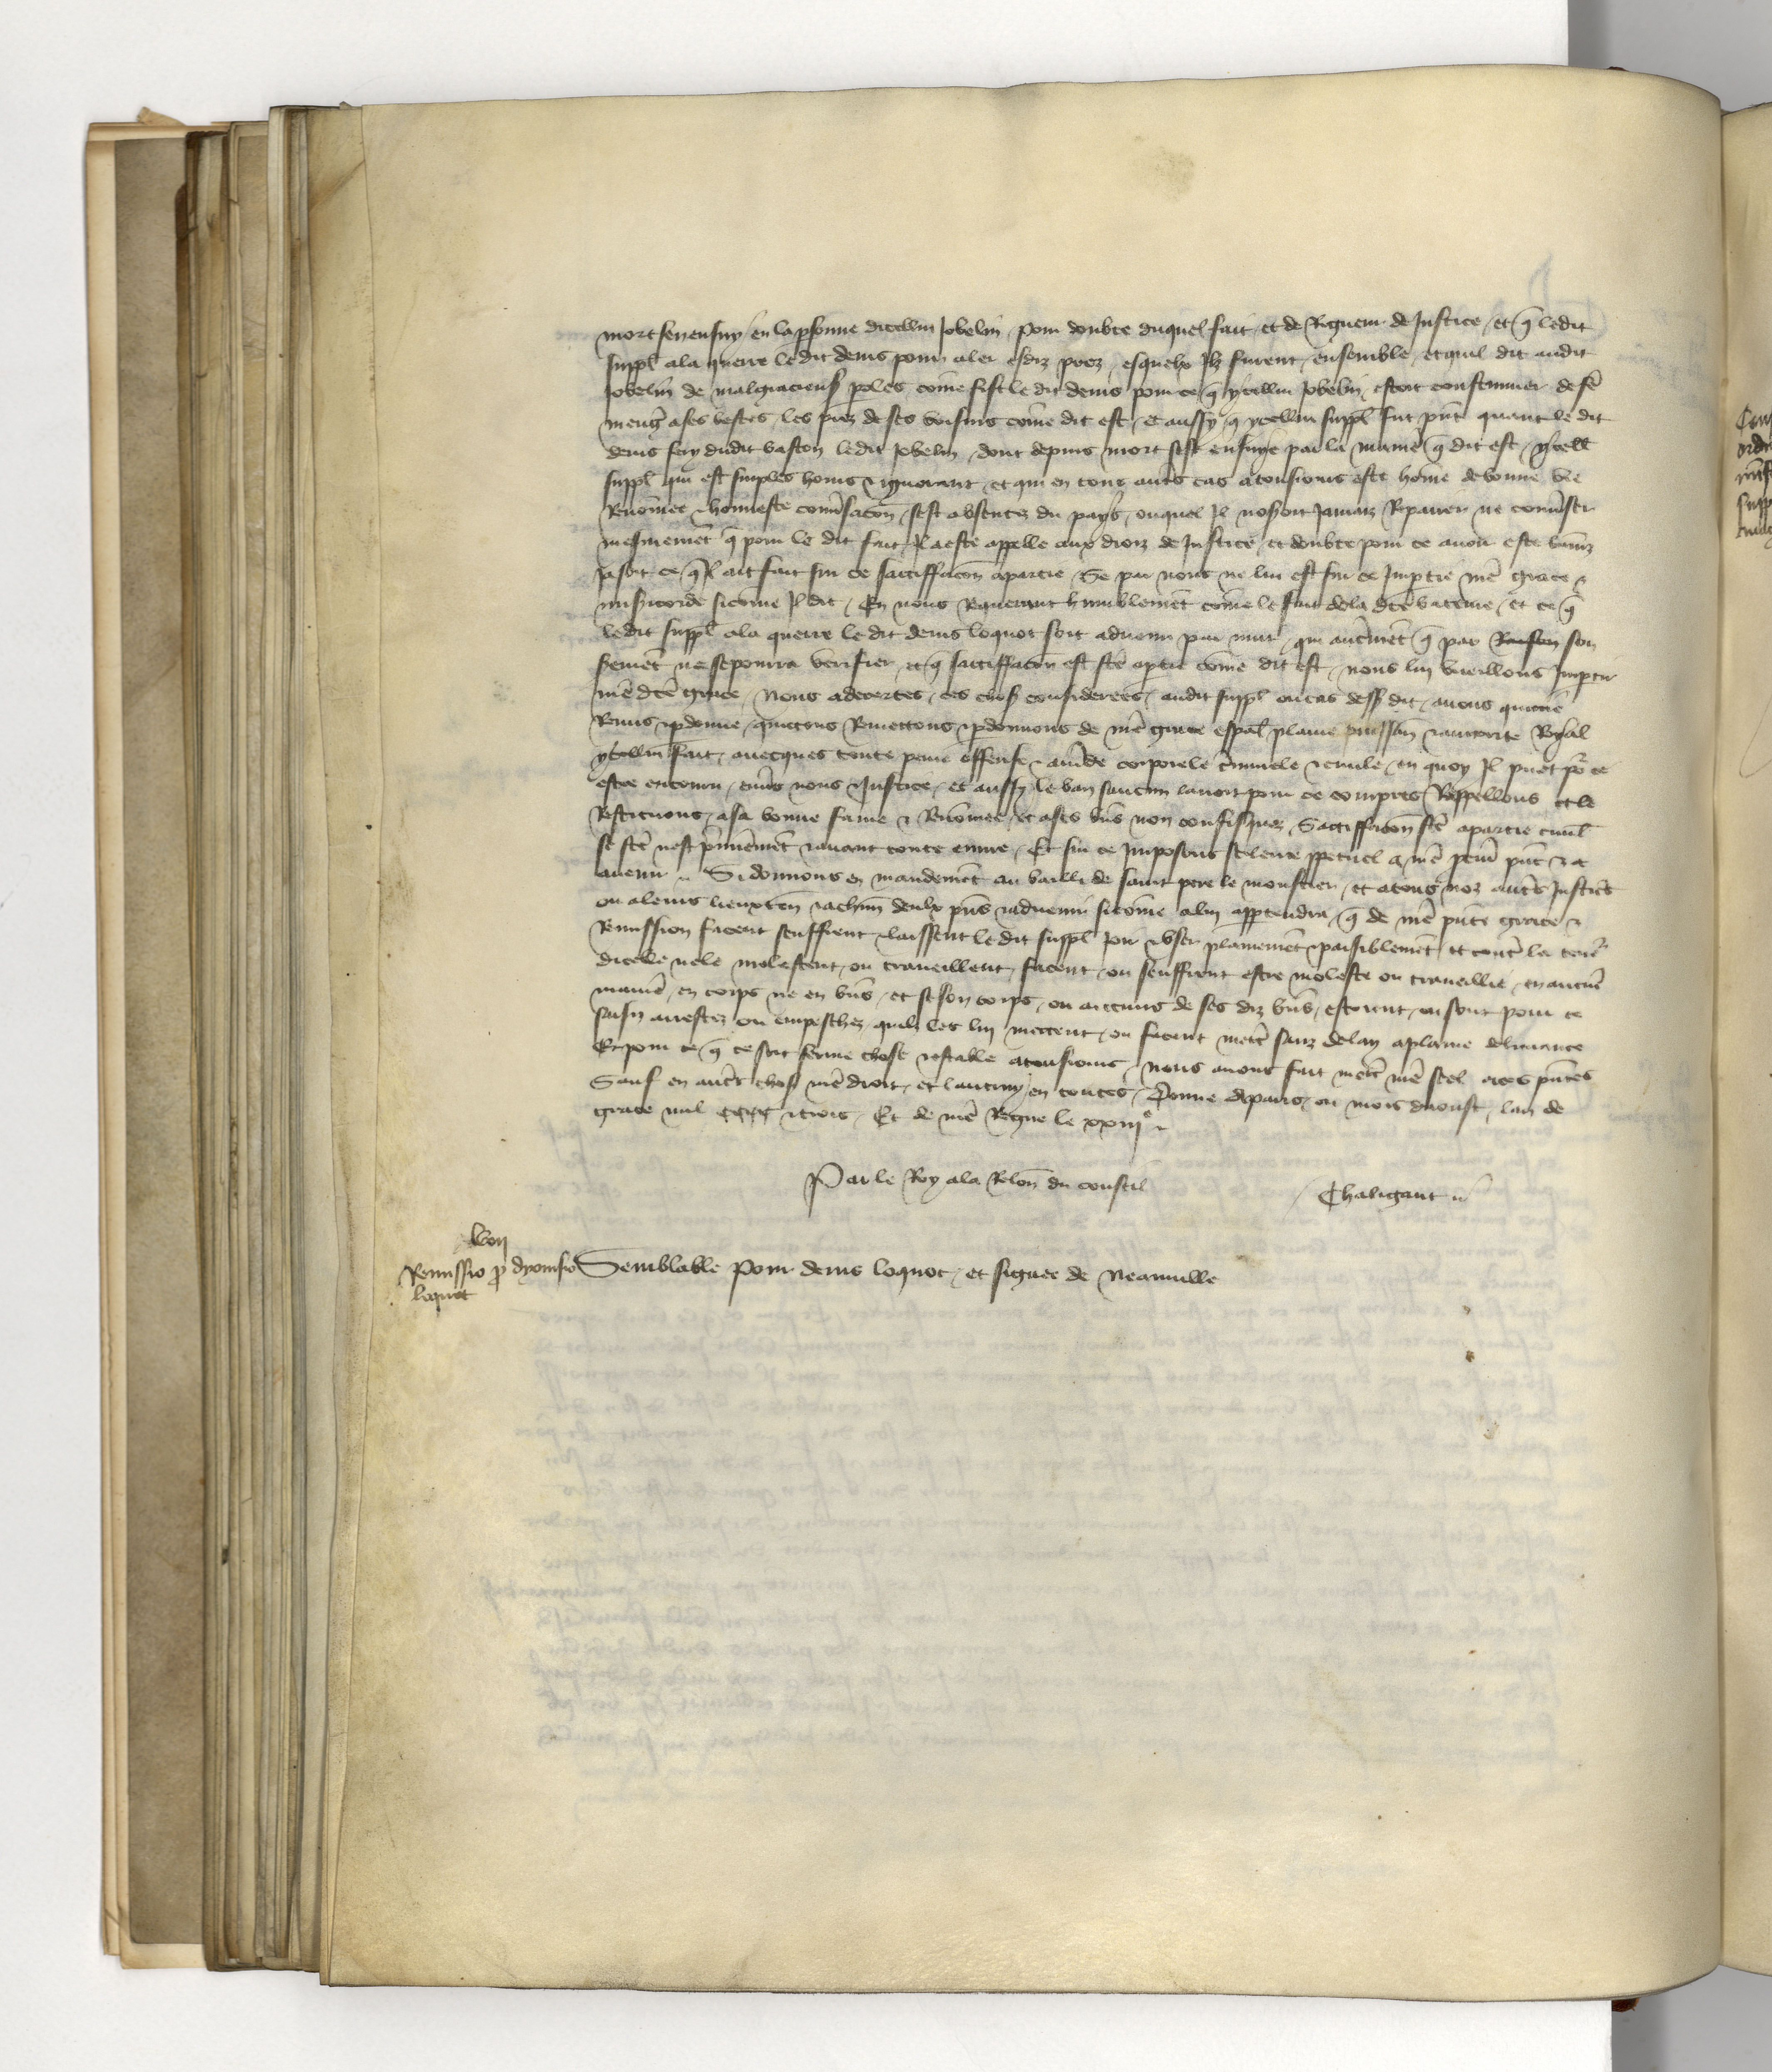 mort sen ensuy en la psonne dicellui Jobelin, Pour doubte duquel fait, et de Rigueur de Justice, et q̃ ledit
suppl̃ ala querre ledit denis pour aler esdiz prez, esquelx Ilz furent, ensemble, et quil dit audit
Jobelin de malgracieuses poles, cõme fist le dit denis pour ce q̃ ycellui Jobelin, estoit coustumier de fẽ
meng̃ a ses bestes, les prez de ses voisins cõme dit est, Et aussy q̃ ycellui suppl̃ fut pñt quant le dit
denis fery dudit baston ledit Jobelin, dont depuis mort sest ensuye par la maniẽ q̃ dit est, ycell̃
suppl̃ qui est simples homs & ignorant, et qui en tous aut̃s cas a tousiours este hõme de bonne vie
Renõmee & honneste conv̂sacõn, sest absentez du pays, ouquel Il noseroit Jamaiz Repairer ne conv̂ser
mesmemẽt q̃ pour le dit fait Il a este appelle aux droiz de Justice, et doubte pour ce avoir este banniz
Ja soit ce q̃l ait fait sur ce satiffacõn a partie, Se par nous ne lui est sur ce Imptie nr̃e grace &
misericorde sicõme Il dit, En nous Requerant humblemẽt cõme le fait de la dc̃e bateure, et ce q̃
ledit suppl̃ ala querre le dit denis loquot soit advenu par nuit, qui aut̃mẽt q̃ par son
seremẽt ne se pourra verifier, et q̃ satiffacõn est fc̃e a ptie cõme dit est, nous lui vueillons Imptir
nr̃e dc̃e grace, Nous adecertes, ces choses considerees, audit suppl̃ ou cas dess dit, avons quittie
Remis & pdonne, quittons Remettons & pdonnons de nr̃e grace espãl plaine puissan̄ & auctorite Royal
ycellui fait, avecques toute peine offense & amẽde corporele c̃minele & civile, en quoy Il puet po᷑ ce
estre encouru, env̂s nous & Justice, et aussy le ban saucun lavoit pour ce compris Rappellons et le
Restituons, a sa bonne fame & Renõmee, et a ses biẽs non confisquez, Satiffacõn fc̃e a partie civil̃
se fc̃e nest p̃mieremẽt & avant toute euvre, Et sur ce Imposons silence ppetuel a nr̃e pcur̃ pñt & a
avenir. Si donnons en mandemẽt au bailli de saint pere le monstier, et a tous noz aut̃s Justic̃s
ou a leurs lieuxteñ & a chũn deulx pñs & advenir sicõme a lui apptendra, q̃ de nr̃e pñte grace &
Remission facent seuffrent & laissent le dit suppl̃ Joir & user plainemẽt & paisiblemẽt, et contr̃ la ten᷑
dicelle ne le molestent, ou traveillent, facent, ou seuffrent estre moleste ou traveillie, en aucun̄
maniẽ, en corps ne en biẽs, et se son corps, ou aucuns de ses diz biẽs, estoient, ou sont pour ce
saisiz arrestez ou empeschez, quilz les lui mettent, ou facent mett̃ sanz delay a plaine delivrance
Et pour ce q̃ ce soit ferme chose & estable a tousiours, nous avons fait mett̃ nr̃e seel a ces pñtes
Sauf en aut̃s choses nr̃e droit, et lautruy en toutes, Donne a Paris, ou mois daoust, lan de
grace mil cccc & trois, Et de nr̃e Regne le xxiii^e
Par le Roy a la Relõn du conseil
Chaligaut
Remissio p dyonisio
loquot
Semblable Pour denis loquot, et signee de Neauville